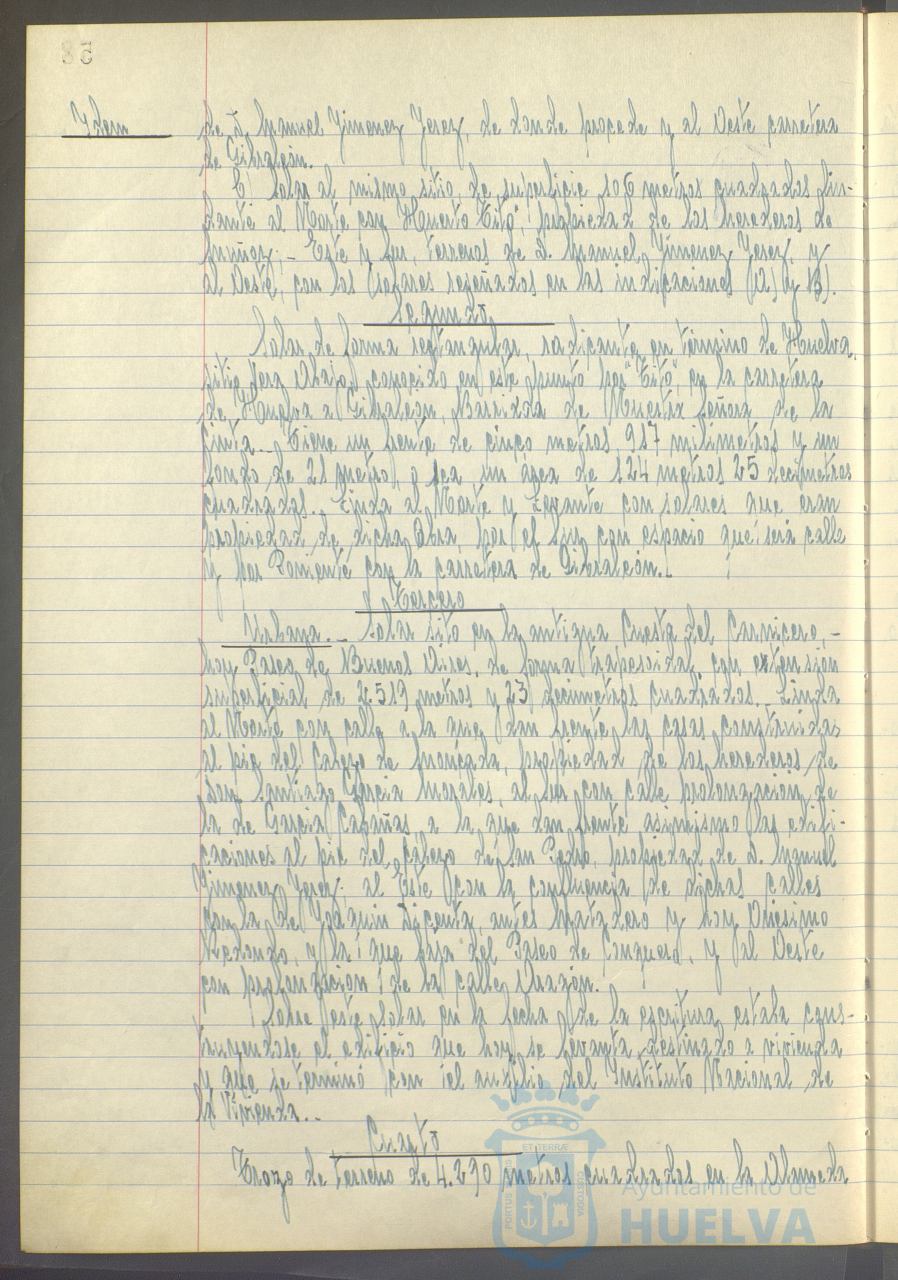 58
Idem
de D. Manuel Jimenez Jerez, de donde procede y al Oeste carretera
de Gibraleón.
C) Solar al mismo sitio de superficie 106 metros cuadrados lin-
dante al Norte con "Huerto Tito", propiedad de los herederos de
Muñoz; - Este y Sur, terrenos de D. Manuel Jimenez Jerez, y
al Oeste, con los solares reseñados en las indicaciones (A) y B).
Segundo
Solar de forma rectangular, radicante en término de Huelva,
sitio Vera Abajo, conocido en este punto por "Tito", en la carretera
de Huelva a Gibraleón, Barriada de Nuestra Señora de la
Cinta.- Tiene un frente de cinco metros 917 milimetros y un
fondo de 21 metros, o sea, un área de 124 metros 25 decimetros
cuadrados.- Linda al Norte y Levante con solares que eran
propiedad de dicha Obra, por el Sur con espacio que será calle
y por Poniente con la carretera de Gibraleón.-
Tercero
Urbana.- Solar sito en la antigua Cuesta del Carnicero, -
hoy Paseo de Buenos Aires, de forma trapesoidal con extensión
superficial de 2.519 metros y 23 decimetros cuadrados.- Linda
al Norte con calle a la que dan frente las casas construidas
al pie del Cabezo de Moncada, propiedad de los herederos de
don Santiago Garcia Morales, al Sur con calle prolongación de
la de Garcia Cabañas, a la que dan frente asimismo las edifi-
caciones al pie del Cabezo de San Pedro, propiedad de D. Manuel
Jimenez Jerez; al Este con la confluencia de dichas calles
con la de Joaquin Dicenta, antes Matadero y hoy Onésimo
Redondo, y la que baja del Paseo de Conquero, y al Oeste
con prolongación de la calle Aragón.
Sobre este solar en la fecha de la escritura estaba cons-
truyendose el edificio que hoy se levanta destinado a vivienda
y que se terminó con el auxilio del Instituto Nacional de
la Vivienda.-
Cuarto
Trozo de terreno de 4.290 metros cuadrados en la Alameda
ET TERRÆ
PORTUS
CUSTODIA
Ayuntamiento de
HUELVA